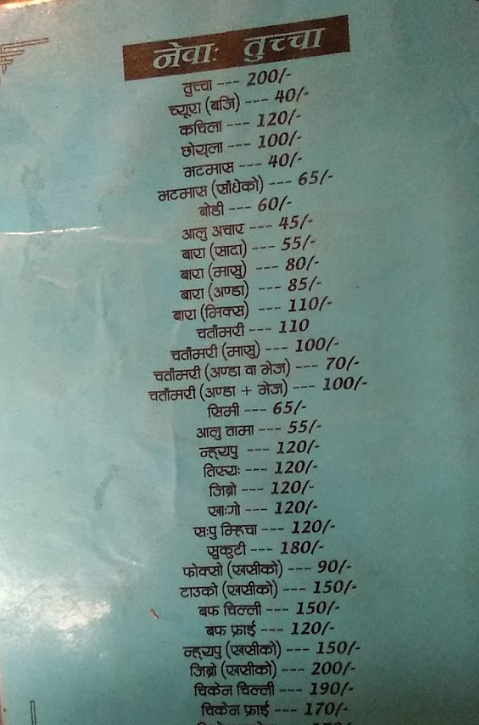 नेवाः तुच्चा
तुच्चा --- 200/-
च्यूरा (बजि) --- 40/-
कचिला --- 120/-
छोय्ला --- 100/-
भटमास --- 40/-
भटमास (साँधेको) --- 65/-
बोडी --- 60/-
आलु अचार --- 45/-
बारा (सादा) --- 55/-
बारा (मासु) --- 80/-
बारा (अण्डा) --- 85/-
बारा (मिक्स) --- 110/-
चताँमरी --- 110
चताँमरी (मासु) --- 100/-
चताँमरी (अण्डा वा भेज) --- 70/-
चताँमरी (अण्डा + भेज) --- 100/-
सिमी --- 65/-
आलु तामा --- 55/-
न्ह्यपु --- 120/-
तिस्यः --- 120/-
जिब्रो --- 120/-
खाःगो --- 120/-
सःपु म्हिचा --- 120/-
सुकुटी --- 180/-
फोक्सो (खसीको) --- 90/-
टाउको (खसीको) --- 150/-
बफ चिल्ली --- 150/-
बफ फ्राई --- 120/-
न्ह्यपु (खसीको) --- 150/-
जिब्रो (खसीको) --- 200/-
चिकेन चिल्ली --- 190/-
चिकेन फ्राई --- 170/-